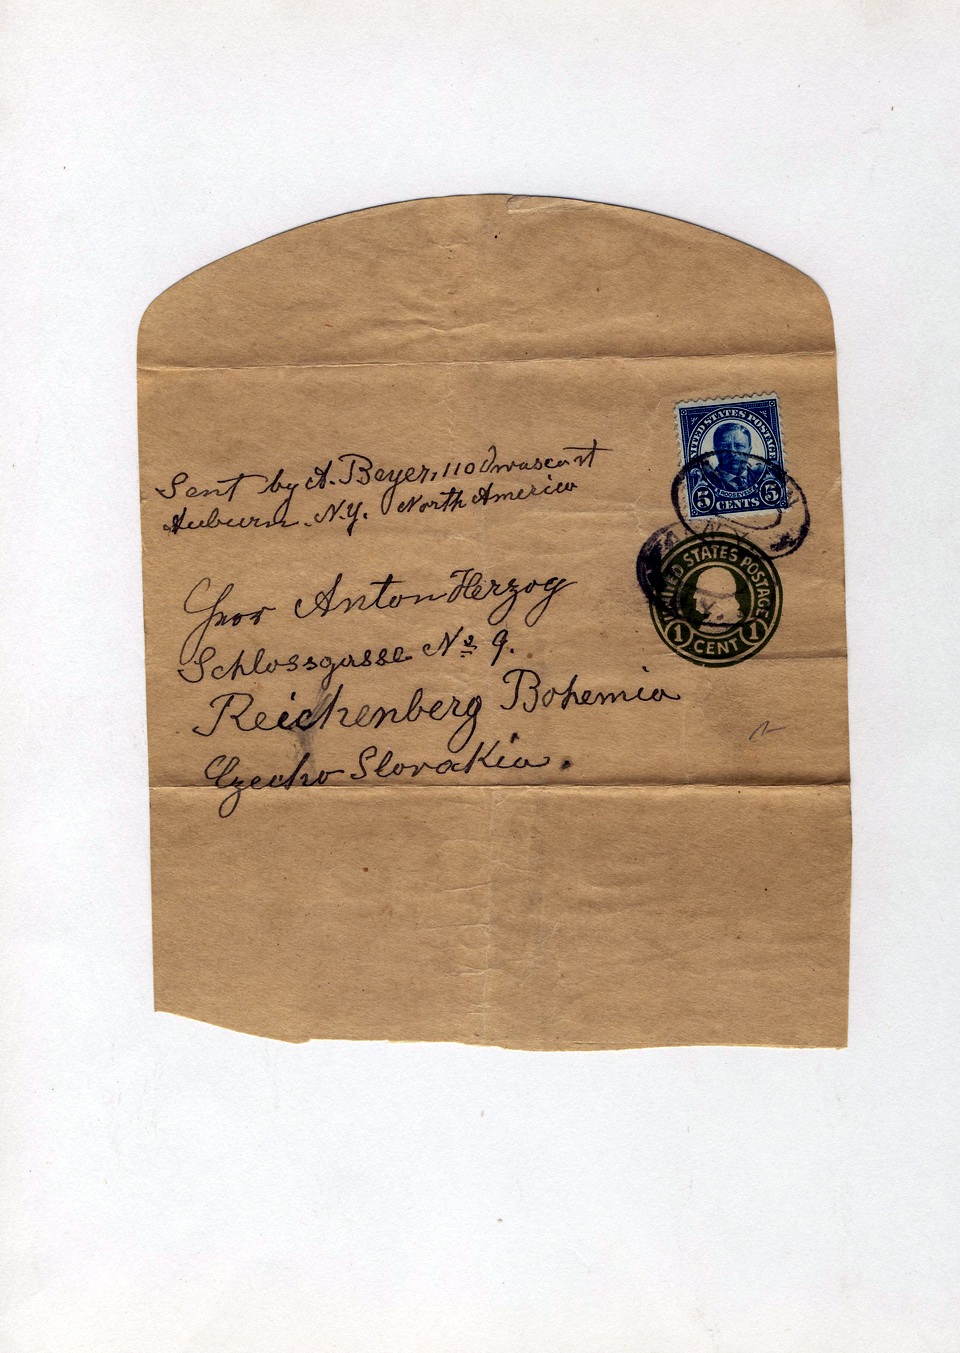 Sent by A. Beyer, 110 Owasco st
Auburn. N.Y. North America
UNITED STATES POSTAGE
ROOSEVELT
5 CENTS 5
N.Y.
UNITED STATES POSTAGE
1 CENT 1
Anton Herzog
Schlossgasse No 9.
Reichenberg Bohemia
Czecho Slovakia.